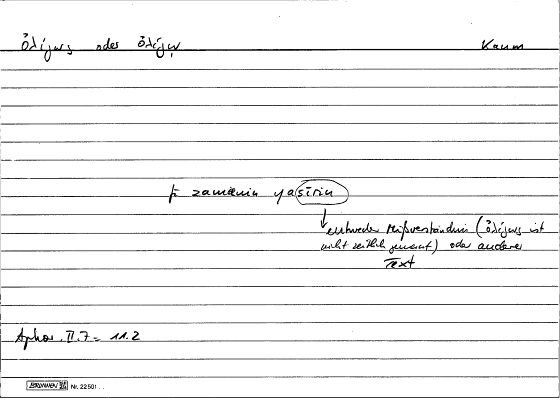 ὀλίγως oder ὀλίγῳ kaum
fī zamānin yasīrin
entweder Mißverständnis (ὀλίγως ist
nicht zeitlich gemeint) oder anderer
Text
Aphor. II.7 = 11.2
BRUNNEN Nr. 22501 ..